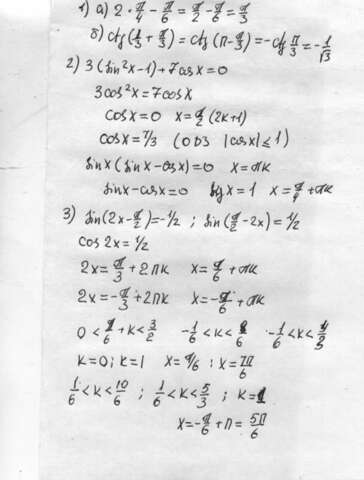 1) а) 2·π/4 - π/6 = π/2 - π/6 = π/3
б) ctg(π/3 + π/3) = ctg(π - π/3) = -ctg π/3 = -1/√3
2) 3(sin²x-1)+7cosx=0
3cos²x=7cosx
cosx=0 x=π/2(2k+1)
cosx=7/3 (ОВЗ |cosx|≤1)
sinx(sinx-cosx)=0 x=πk
sinx-cosx=0 tgx=1 x=π/4+πk
3) sin(2x-π/2)=-1/2 ; sin(π/2-2x)=1/2
cos2x=1/2
2x=π/3+2πk x=π/6+πk
2x=-π/3+2πk x=-π/6+πk
0<1/6+k<3/2 -1/6<k< -1/6<k<4/3
k=0; k=1 x=π/6 ; x=7π/6
1/6<k<10/6 ; 1/6<k<5/3 ; k=1
x=-π/6+π=5π/6